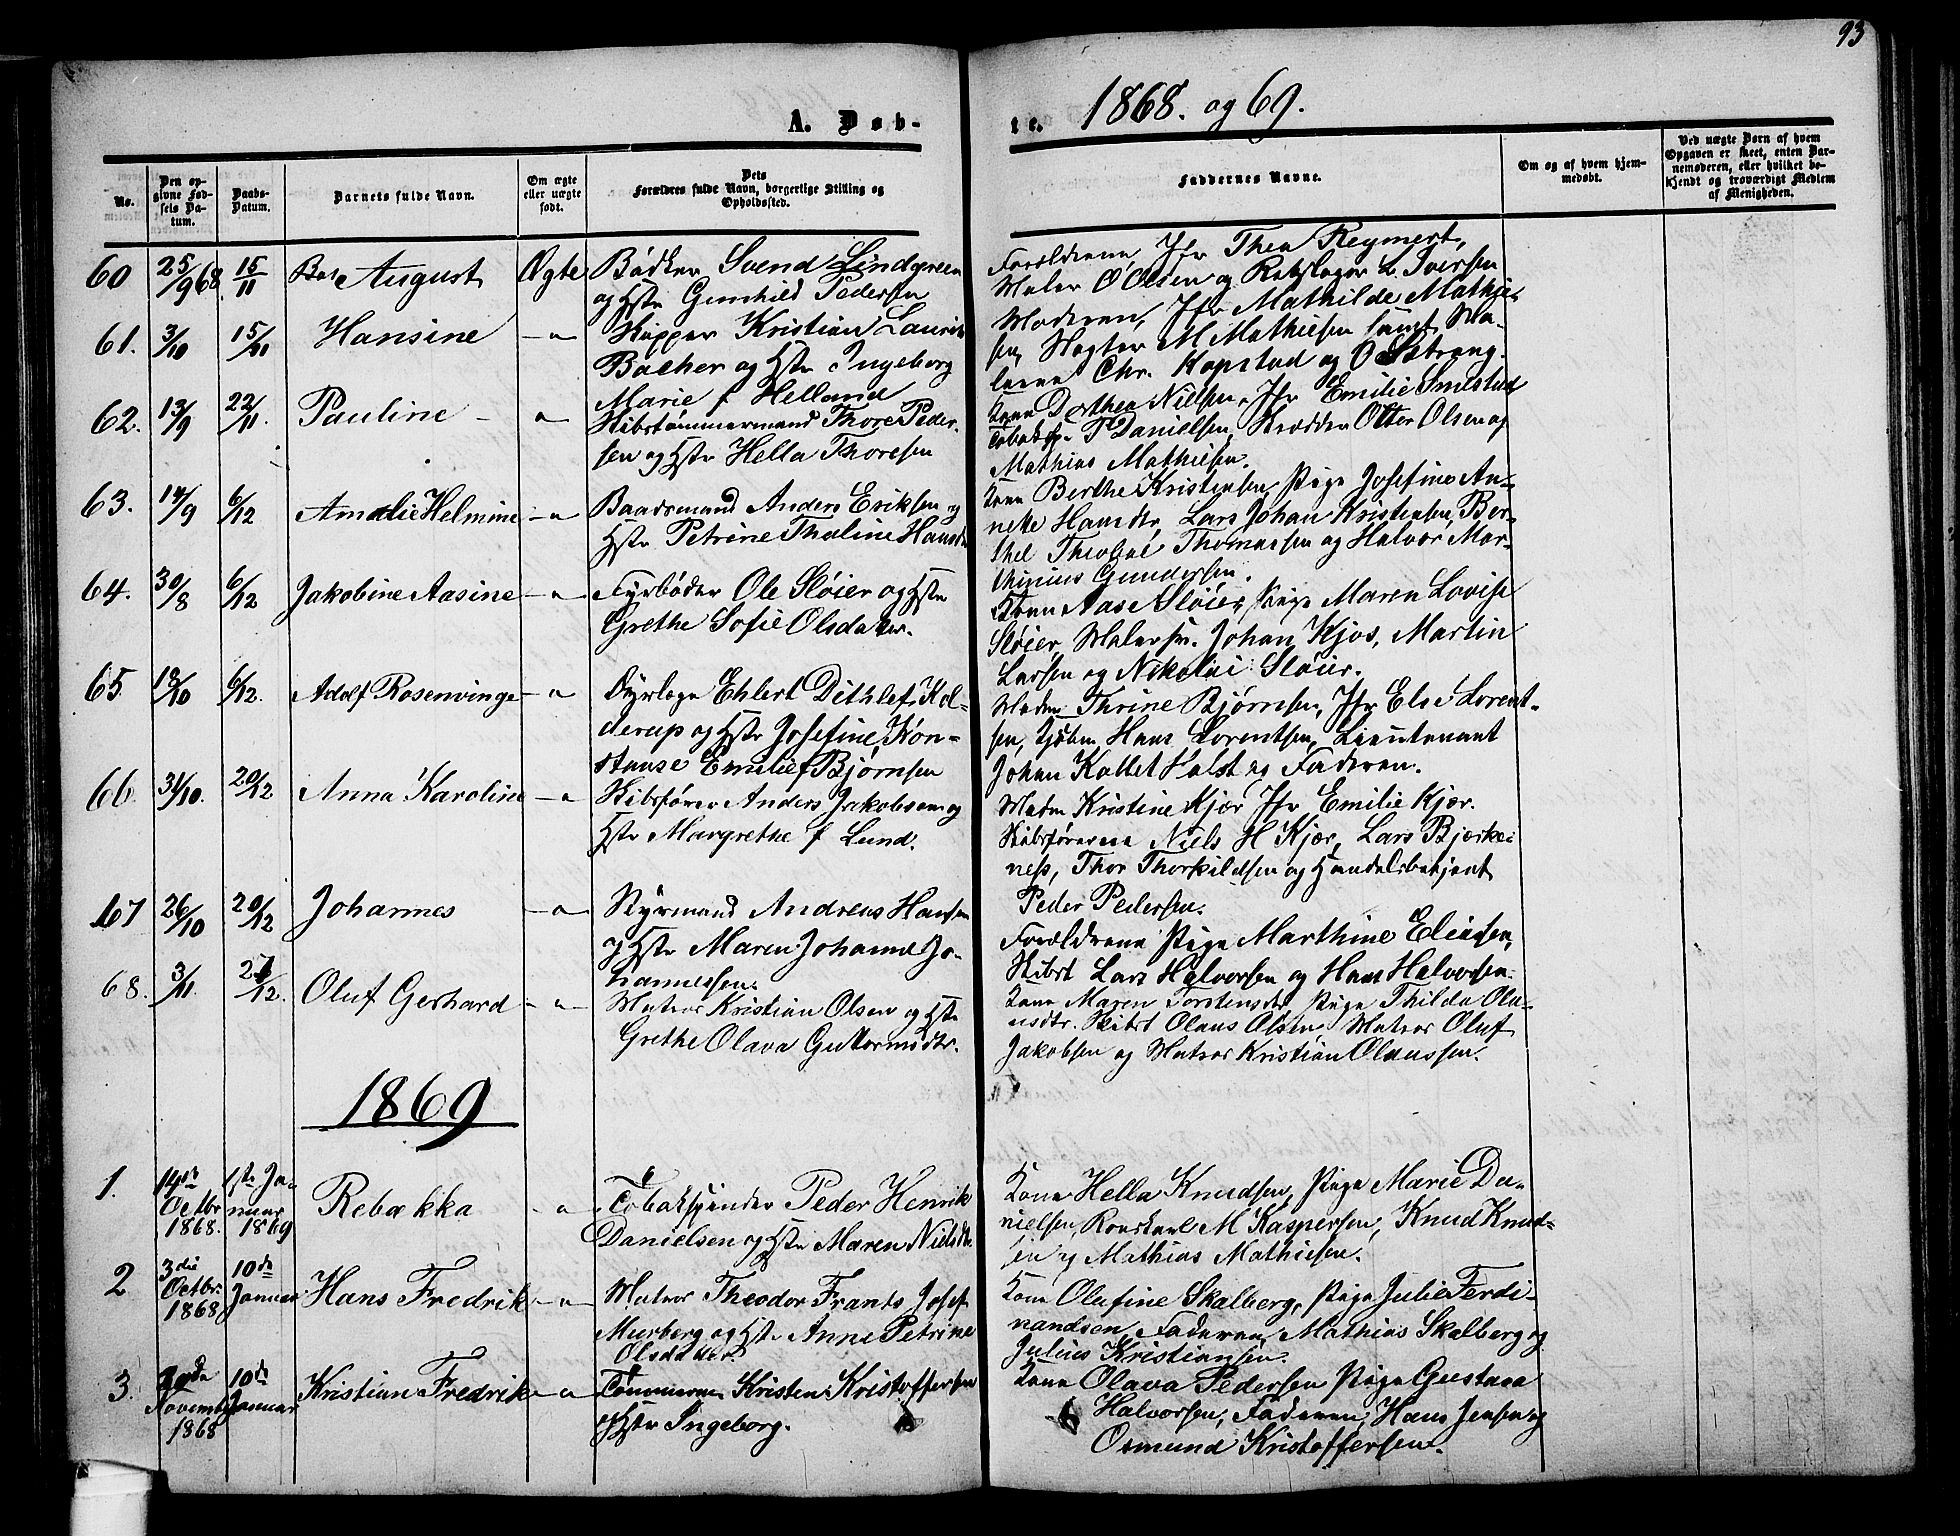 93
A. Døb-
te. 1868. og 69.
No.
Den op-
givne Fød-
sels Da-
tum.
Daabs-
Datum.
Barnets fulde Navn.
Om ægte
eller uægte
født.
Dets
Forældres fulde Navn, borgerlige Stilling og
Opholdssted.
Faddernes Navne.
Om og af hvem hjem-
medøbt.
Ved uægte Børn af hvem
Opgaven er skeet, enten Bar-
nemoderen, eller hvilket be-
kjendt og troværdigt Medlem
af Menigheden.
60 25/9 68. 15/11 August Ægte Bødker Svend Lindgreen
og Hstr Gunhild Pedersen
Forældrene, Jfr Thea Reymert,
Maler O Olsen og Rebslager L Iversen
61. 3/10 15/11 Hansine -"- Skipper Kristian Laurits
Bacher og Hstr Ingeborg
Marie f Helland
Moderen, Jfr Mathilde Mathie-
sen, Slagter M Mathiesen samt Ma-
lerne Chr. Kopstad og O Østrang.
62. 13/9 22/11. Pauline - " Skibstømmermand Thore Peder-
sen og Hstr Hella Thoresen
Kone Dorthea Nielsen, Jfr Emilie Smestad
Tobaksp. P Danielsen, Skrædder Otter Olsen og
Mathias Mathiesen.
63. 14/9 6/12 Amalie Helmine -"- Baadsmand Anders Eriksen og
Hstr Petrine Thaline Hansdtr
Kone Berthe Kristensen, Pige Josefine An-
nette Hansdtr, Lars Johan Kristensen, Ber-
thel Theobal Thomassen og Halvor Mar-
thinius Gundersen.
64. 30/8 6/12 Jakobine Aasine -"- Fyrbøder Ole Sløier og Hstr
Grethe Sofie Olsdatter.
Kone Aase Sløier, Pige Maren Lovise
Sløier, Malersv. Johan Kjos, Martin
Larsen og Nikolai Sløier.
65 18/10 6/12. Adolf Rosenvinge -"- Dyrlæge Ehlert Dithlef Kol-
derup og Hstr Josefine Kon-
stanse Emilie f Bjørnsen
Madm Thrine Bjørnsen, Jfr Else Lorent-
sen, Kjøbm Hans Lorentsen, Lieutenant
Johan Koltet Holst og Faderen.
66. 31/10. 20/12 Anna Karoline -"- Skibsfører Anders Jakobsen og
Hstr Margrethe f Lund.
Madm Kristine Kjær Jfr Emilie Kjær.
Skibsførerne Niels H Kjær, Lars Bjerke-
ness, Thor Thorkildsen og Handelsbetjent
Peder Pedersen.
67 26/10 20/12 Johannes -"- Styrmand Andreas Hansen
og Hstr Maren Johanne Jo-
hannessen.
Forældrene Pige Marthine Eliasen,
Skibst Lars Halvorsen og Hans Halvorsen.
68. 3/11. 27/12. Oluf Gerhard -"- Matros Kristian Olsen og Hstr
Grethe Olava Guttormsdtr.
Kone Maren Torstensdtr Pige Thilda Ola-
usdtr. Skibst Olaus Olsen Matros Oluf
Jakobsen og Matros Kristian Olaussen.
1869
1. 14de Octbr 1868. 1ste Ja-
nuar 1869 Rebækka -"- Tobakspinder Peder Henrik
Danielsen og Hstr Maren Nielsdtr
Kone Hella Knudsen, Pige Marie Da-
nielsen, Rorskarl M Kaspersen, Knud Knud-
sen og Mathias Mathiesen.
2 3die Octbr. 1868 10de Januar Hans Fredrik -"- Matros Theodor Frants Josef
Murberg og Hstr Anne Petrine
Olsdatter.
Kone Olufine Skalberg, Pige Julie Ferdi-
nandsen, Faderen, Mathias Skalberg og
Julius Kristiansen.
3. Novemb 1868 10de Januar Kristian Fredrik -"- Tømmerm Kristen Kristoffersen
og Hstr Ingeborg.
Kone Olava Pedersen Pige Gustava
Halvorsen, Faderen, Hans Jensen og
Osmund Kristoffersen.